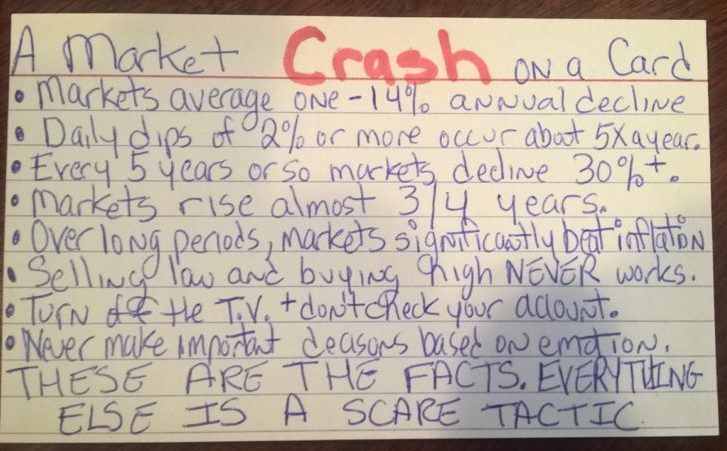 A Market Crash ON a Card
• Markets average ONE -14% annual decline
• Daily dips of 2% or more occur about 5X a year.
• Every 5 years or so markets decline 30%+.
• Markets rise almost 3/4 years.
• Over long periods, markets significantly beat inflation
• Selling low and buying high NEVER works.
• TURN off the T.V. + don't check your account.
• Never make important decasons based on emotion.
THESE ARE THE FACTS. EVERYTHING
ELSE IS A SCARE TACTIC.